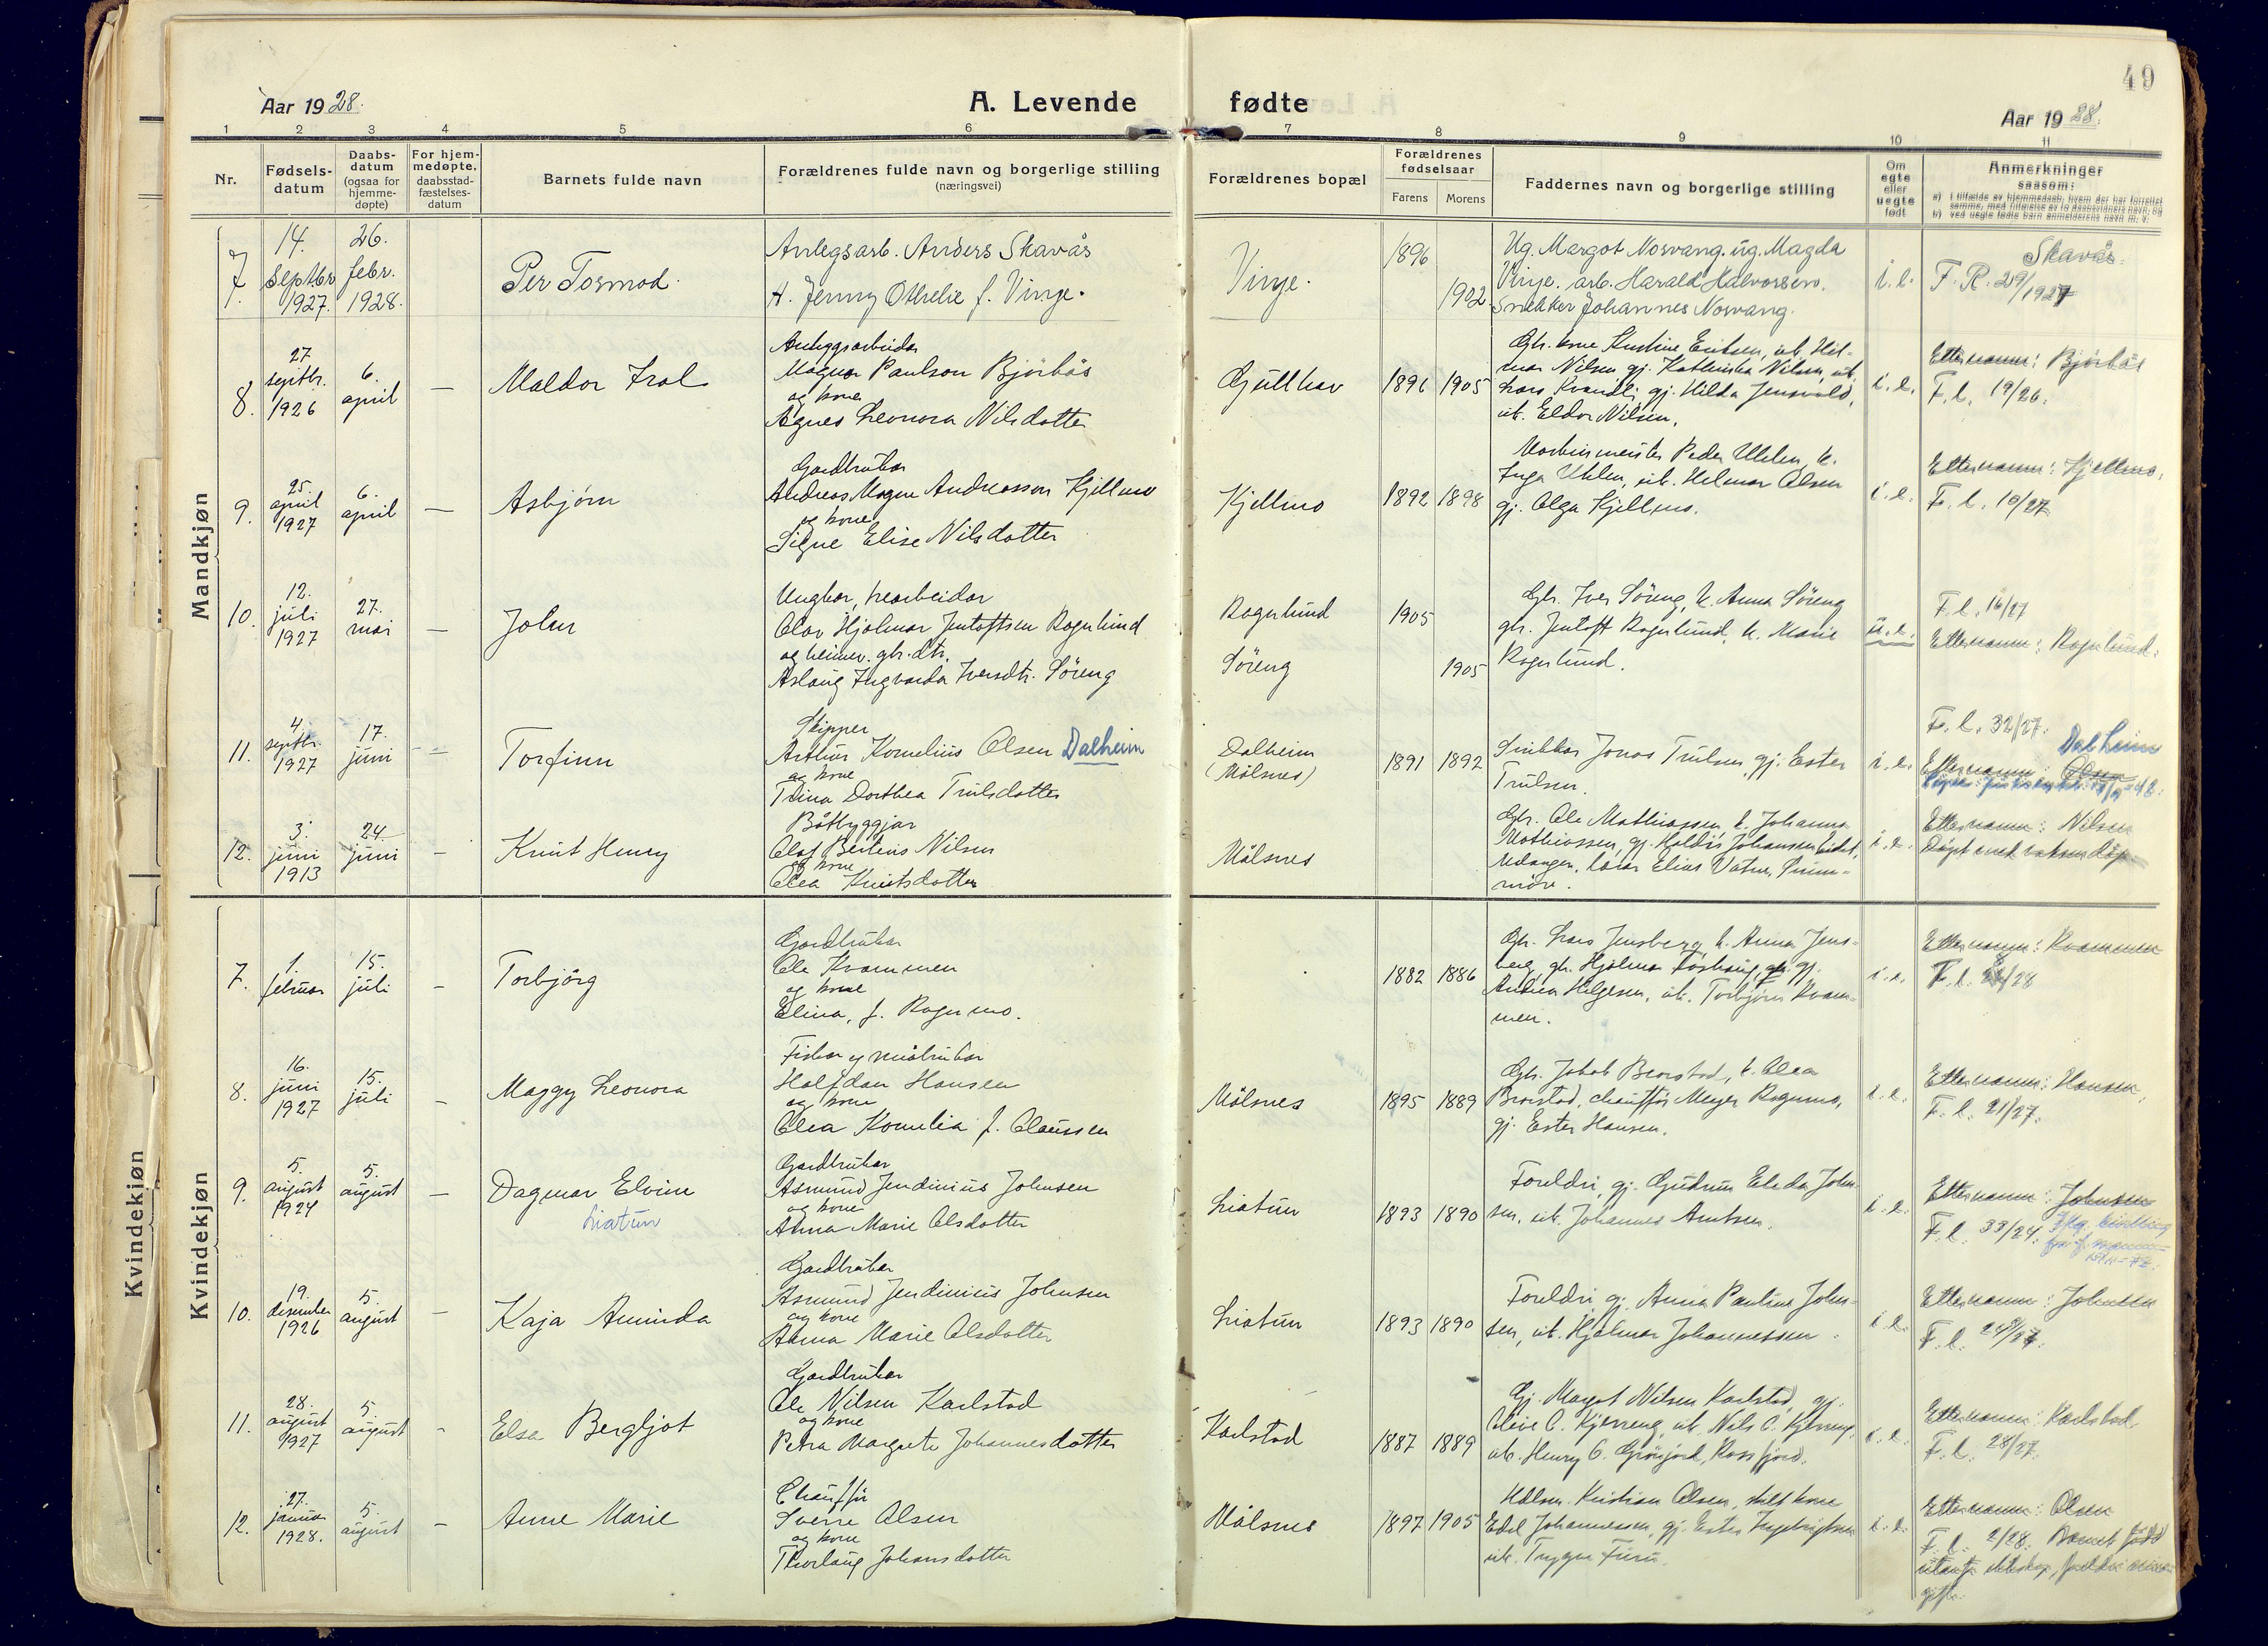 49
Aar 1928.
A. Levende fødte
Aar 1928.
1 2 3 4 5 6 7 8 9 10 11
Nr.
Fødsels-
datum
Daabs-
datum
(ogsaa for
hjemme-
døpte)
For hjem-
medøpte,
daabsstad-
fæstelses-
datum
Barnets fulde navn
Forældrenes fulde navn og borgerlige stilling
(næringsvei)
Forældrenes bopæl
Forældrenes
fødselsaar
Farens Morens
Faddernes navn og borgerlige stilling
Om
egte
eller
uegte
født
Anmerkninger
saasom:
Mandkjøn
7.
14.
septbr
1927.
26.
febr.
1928.
Per Tormod.
Anlegsarb. Anders Skavås
H. Jenny Othelie f. Vinje.
Vinje.
1896
1902
Ug. Margot Nosvang. ug. Magda
Vinje. arb. Harald Halvorsen.
Snekker Johannes Nosvang.
i. e.
Skavås.
F. R. 29/1927
8.
27
septbr.
1926
6.
april
—
Maldor Frol
Anleggsarbeidar
Magnor Paulson Bjørbås
og kone
Agnes Leonora Nilsdotter
Gullhav
1896 1905
Gbr. kone Kristine Eriksen, ub. Hil-
mar Nilsen gj. Kathinka Nilsen, ub.
Lars Kvandli, gj. Hilda Jensvold,
ub. Eldor Nilsen.
i. e.
Etternamn: Bjørbås
F. l. 19/26.
9.
25.
april
1927
6.
april
—
Asbjørn
Gardbrukar
Andreas Magnus Andreassen Kjellmo
og kone
Signe Elise Nilsdotter
Kjellmo
1892 1898
Maskinmeister Peder Uhlen, k.
Inga Uhlen, ub. Helmar Olsen
gj. Olga Kjellmo.
i. e.
Etternamn: Kjellmo.
F. l. 10/27.
10.
12.
juli
1927
27.
mai
—
John
Ungkar, trearbeidar
Olav Hjalmar Jentoftsen Rognlund
og heimev. gbr. dtr.
Aslaug Ingvarda Iversdtr. Søreng
Rognlund
Søreng
1905
1905
Gbr. Iver Søreng, k. Anna Søreng
gbr. Jentoft Rognlund, k. Marie
Rognlund.
u. e.
F. l. 16/27
Etternamn: Rognlund.
11.
4.
septbr.
1927
17.
juni
—
Torfinn
Skipper
Arthur Kornelius Olsen Dalheim
og kone
Trina Dorthea Trulsdotter
Dalheim
(Målsnes)
1891 1892
Snikkar Jonas Trulsen, gj. Ester
Trulsen.
i. e.
F. l. 32/27.
Dalheim
Etternamn: Olsen
12.
3.
juni
1913
24
juni
—
Knut Henry
Båtbyggjar
Olaf Bertens Nilsen
og kone
Olea Knutsdotter
Målsnes
Gbr. Ole Mathiassen, k. Johanna
Mathiassen, gj. Haldis Johansen
lærar Elias Vatne, Sunn-
møre.
i. e.
Etternamn: Nilsen
Døypt med vaksen dåp.
Kvindekjøn
Kvindekjøn
7.
1.
februar
15.
juli
—
Torbjørg
Gardbrukar
Ole Kvammen
og kone
Elina, f. Rognmo.
1882 1886
Gbr. Lars Jensberg, k. Anna Jens-
berg, gbr. Hjalmar gj.
Andrea Helgesen, ub. Torbjørn Kvam-
men.
i. e.
Etternamn: Kvammen
8.
16.
juni
1927
15.
juli
—
Maggy Leonora
Fiskar og småbrukar
Halfdan Hansen
og kone
Olea Kornelia f. Claussen
Målsnes
1895 1889
Gbr. Jakob Brorstad, k. Olea
Brorstad, chauffør Meyer Rognmo,
gj. Ester Hansen.
i. e.
Etternamn: Hansen,
F. l. 21/27.
9.
5.
august
1924
5.
august
—
Dagmar Elvine
Liatun
Gardbrukar
Asmund Jendinius Johnsen
og kone
Anna Marie Olsdotter
Liatun
1893 1890
Foreldri, gj. Gudrun Elida John-
sen, ub. Johannes Arntsen.
i. e.
Etternamn: Johnsen
F. l. 33/24.
10.
19.
desember
1926
5.
august
—
Kaja Aminda
Gardbrukar
Asmund Jendinius Johnsen
og kone
Anna Marie Olsdotter
Liatun
1893 1890
Foreldri, gj. Anna Pauline John-
sen, ub. Hjalmar Johannessen.
i. e.
Etternamn: Johnsen
11.
28.
august
1927
5.
august
-
Elsa Bergljot
Gardbrukar
Ole Nilsen Karlstad
og kone
Petra Margrete Johannesdotter
Karlstad
1887 1889
Gj. Margot Nilsen Karlstad, gj.
Olive O. Kjerreng, ub. Nils O. Kjerreng,
ub. Henry O. Grønjord, Rossfjord.
i. e.
Etternamn: Karlstad
F. l. 28/27.
12.
27.
januar
1928.
5.
august
-
Anne Marie
Chauffør
Sverre Olsen
og kone
Thorlaug Johansdotter
Målsnes
1897 1905
Kristian Olsen, kone
Edel Johannessen, gj. Ester Ingebrigtsen
ub. Trygve Furu.
i. e.
Etternamn: Olsen
F. l. 2/28. Barnet född
utanfor ekteskap, foreldri
gift.